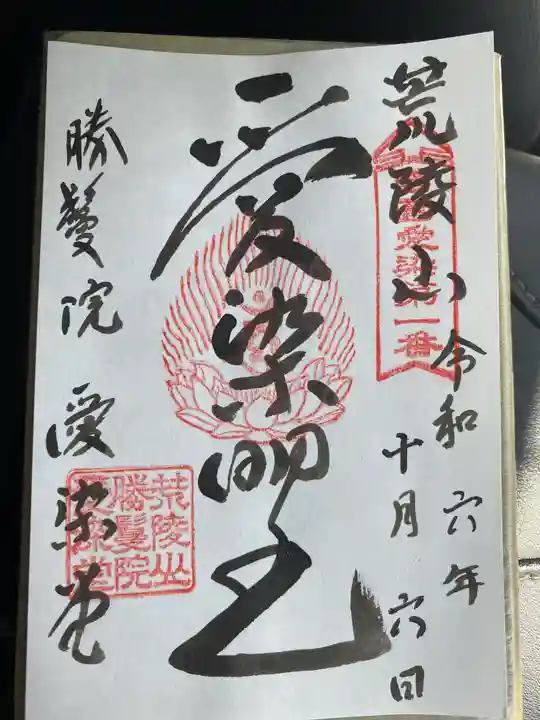 荒陵山
令和六年
十月六日
愛染第一番
愛染明王
勝鬘院 愛染堂
荒陵山
勝鬘院
愛染堂